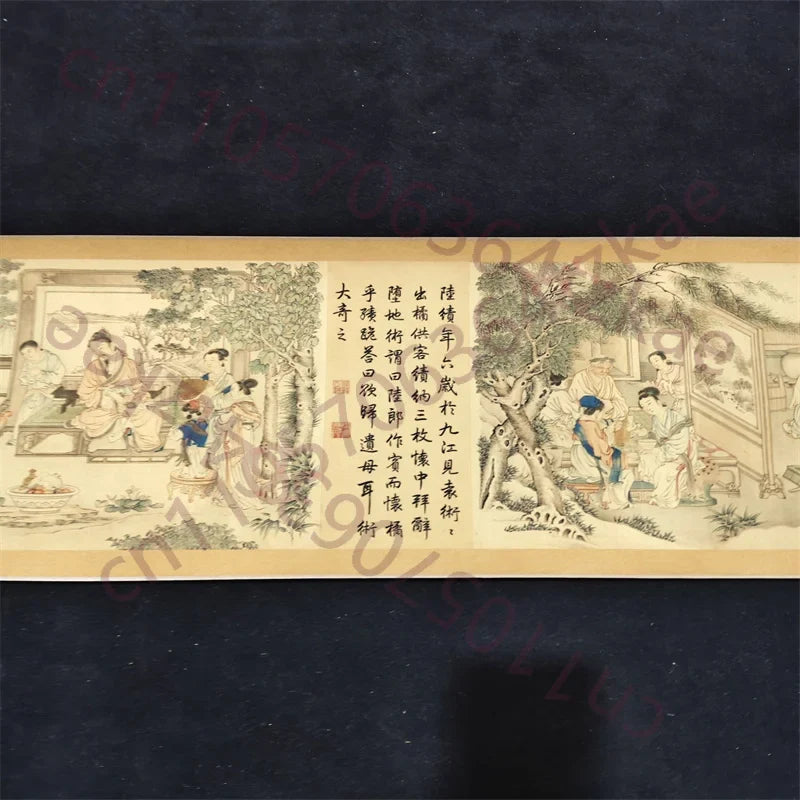 陸績年六歲於九江見袁術〻
出橘供客績納三枚懷中拜辭
墮地術謂曰陸郎作賓而懷橘
乎績跪荅曰欲歸遺母耳術
大奇之
cn1105706364zkae
cn1105706364zkae